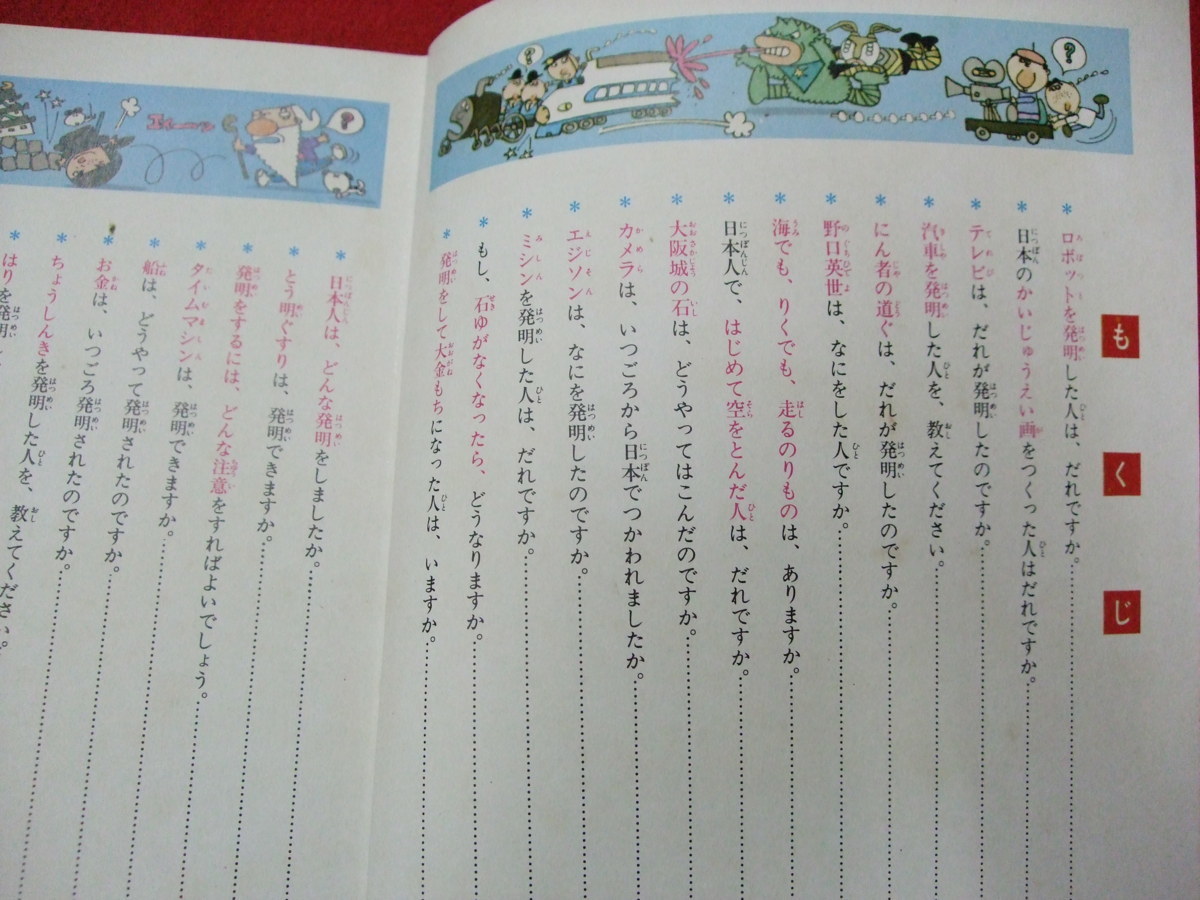 もくじ
＊ロボットを発明した人は、だれですか。
＊日本のかいじゅうえい画をつくった人はだれですか。
＊テレビは、だれが発明したのですか。
＊汽車を発明した人を、教えてください。
＊にん者の道ぐは、だれが発明したのですか。
＊野口英世は、なにをした人ですか。
＊海でも、りくでも、走るのりものは、ありますか。
＊日本人で、はじめて空をとんだ人は、だれですか。
＊大阪城の石は、どうやってはこんだのですか。
＊カメラは、いつごろから日本でつかわれましたか。
＊エジソンは、なにを発明したのですか。
＊ミシンを発明した人は、だれですか。
＊もし、石ゆがなくなったら、どうなりますか。
＊発明をして大金もちになった人は、いますか。
＊日本人は、どんな発明をしましたか。
＊とう明ぐすりは、発明できますか。
＊発明をするには、どんな注意をすればよいでしょう。
＊タイムマシンは、発明できますか。
＊船は、どうやって発明されたのですか。
＊お金は、いつごろ発明されたのですか。
＊ちょうしんきを発明した人を、教えてください。
＊はりを発明
ください。